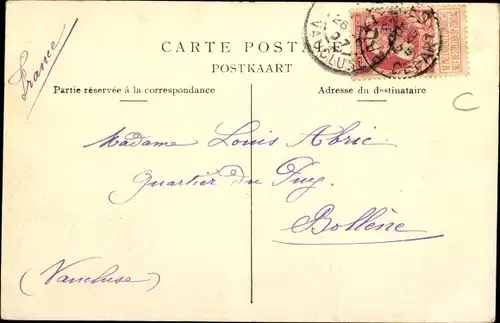 France
CARTE POSTALE
POSTKAART
Partie réservée à la correspondance
Adresse du destinataire
Madame Louis Abric.
Quartier du Puy.
Bollène
(Vaucluse)
VAUCLUSE
DEPART
C